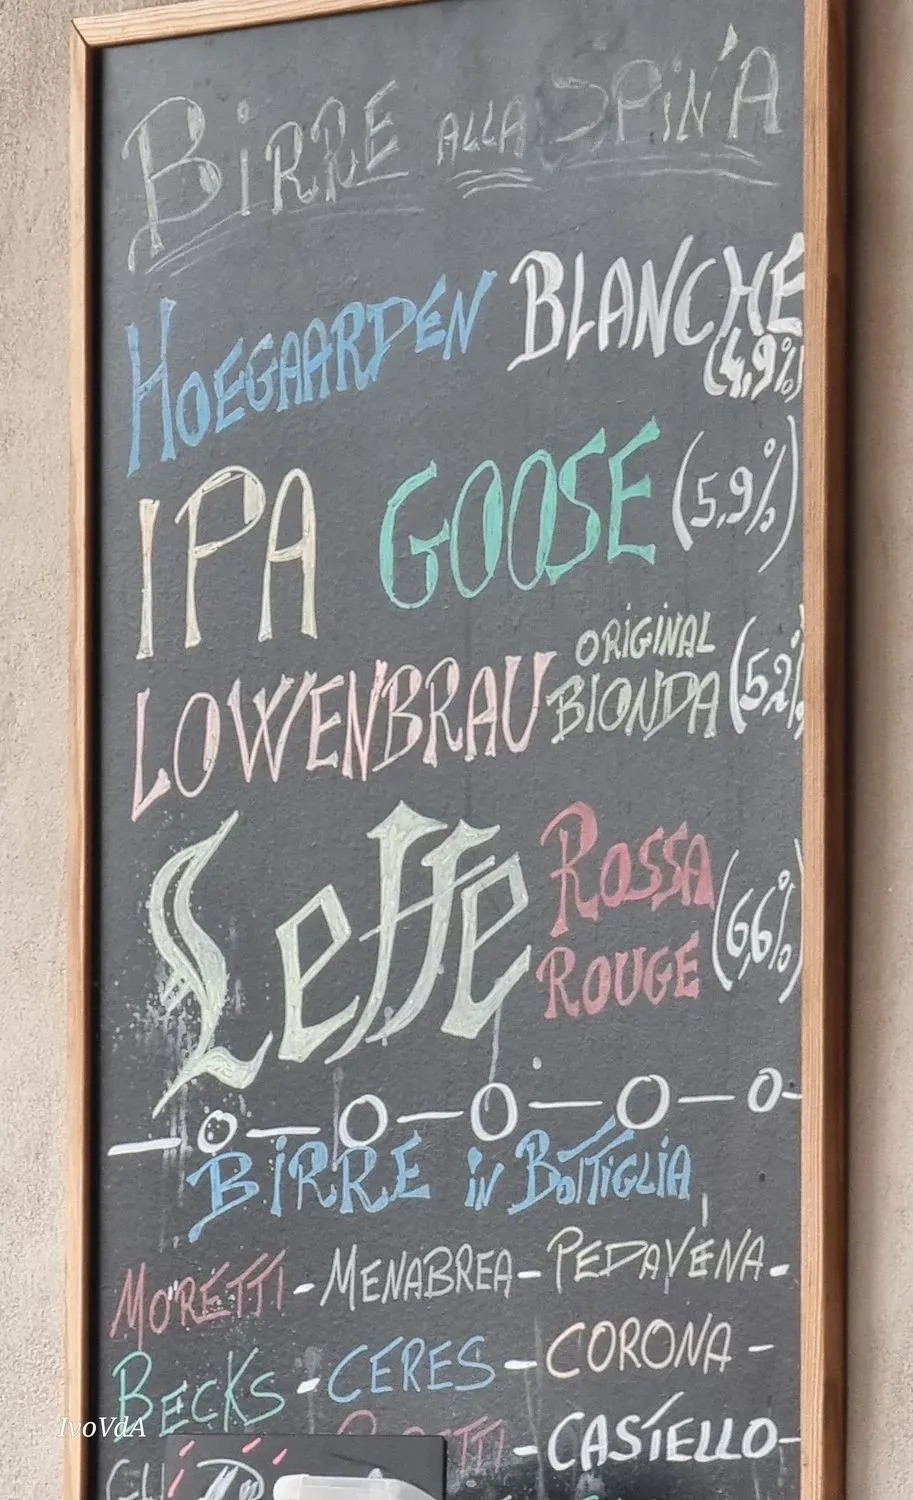 BIRRE ALLA SPINA
HOEGAARDEN BLANCHE
(4,9%)
IPA GOOSE (5,9%)
LOWENBRAU ORIGINAL BIONDA (5,2%)
Leffe ROSSA ROUGE (6,6%)
BIRRE in BOTTIGLIA
MORETTI - MENABREA - PEDAVENA -
BECKS - CERES - CORONA -
- CASTELLO -
IvoVdA